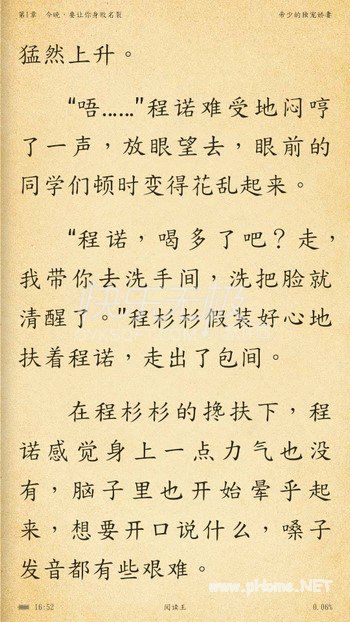 第1章 今晚,要让你身败名裂 帝少的独宠娇妻
猛然上升。
“唔……”程诺难受地闷哼
了一声，放眼望去，眼前的
同学们顿时变得花乱起来。
“程诺，喝多了吧？走，
我带你去洗手间，洗把脸就
清醒了。”程杉杉假装好心地
扶着程诺，走出了包间。
在程杉杉的搀扶下，程
诺感觉身上一点力气也没
有，脑子里也开始晕乎起
来，想要开口说什么，嗓子
发音都有些艰难。
www.pHome.NET
16:52 阅读王 0.06%